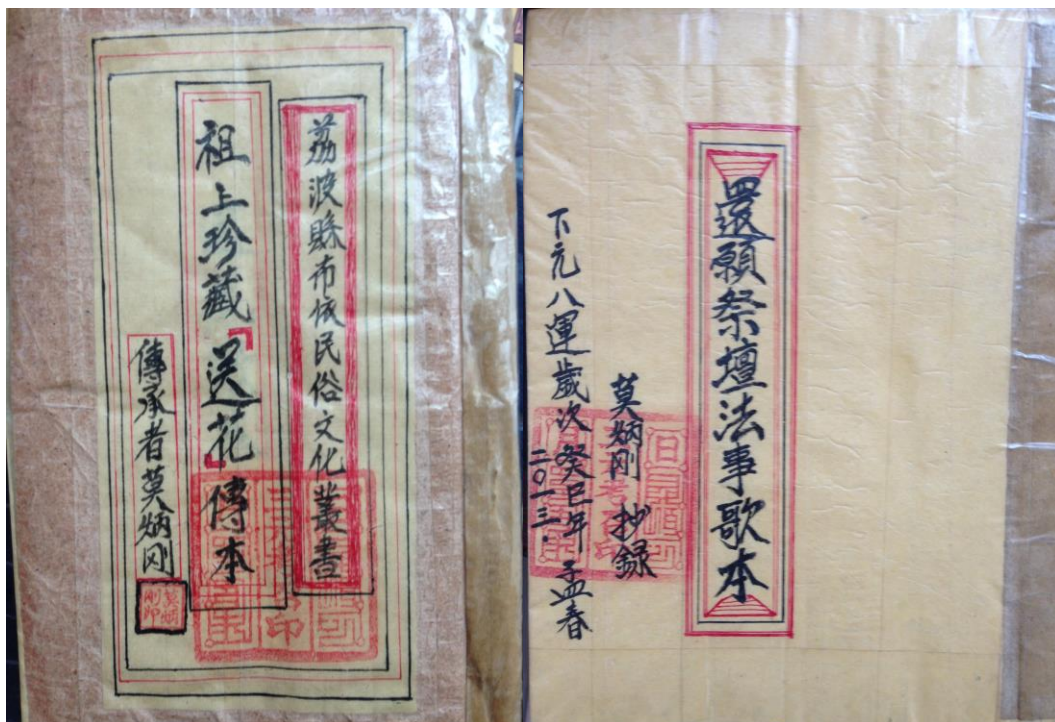 荔波縣布依民俗文化叢書
祖上珍藏『送花』傳本
傳承者莫炳刚
莫炳
剛印
還願祭壇法事歌本
莫炳刚 抄録
下元八運歲次癸巳年 孟春
二〇一三.